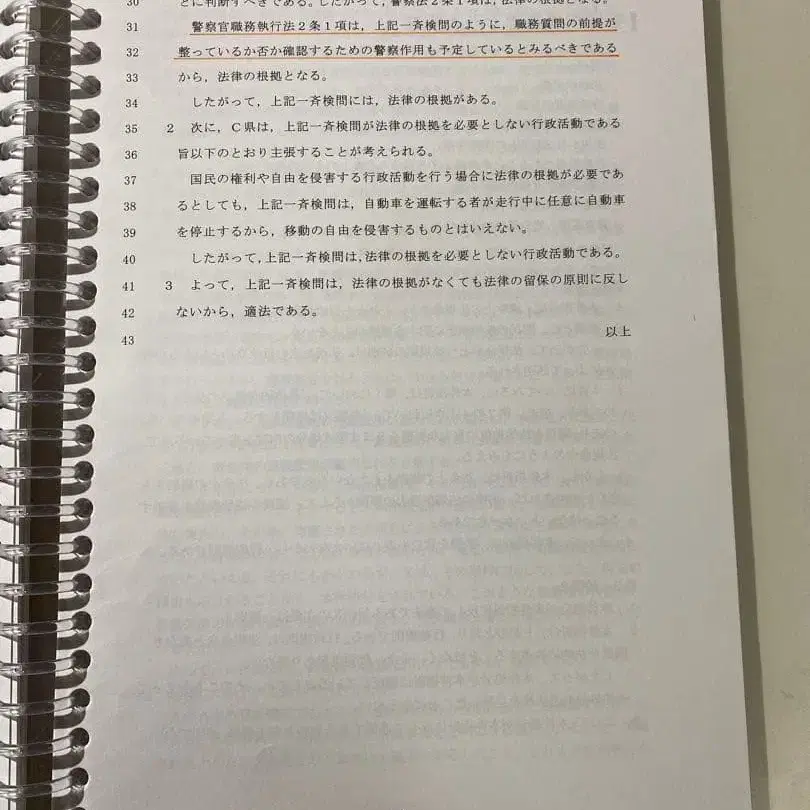 30 とに判断すべきである。したがって，警察法２条１項は，法律の根拠となる。
31 警察官職務執行法２条１項は，上記一斉検問のように，職務質問の前提が
32 整っているか否か確認するための警察作用も予定しているとみるべきである
33 から，法律の根拠となる。
34 したがって，上記一斉検問には，法律の根拠がある。
35 ２ 次に，Ｃ県は，上記一斉検問が法律の根拠を必要としない行政活動である
36 旨以下のとおり主張することが考えられる。
37 国民の権利や自由を侵害する行政活動を行う場合に法律の根拠が必要であ
38 るとしても，上記一斉検問は，自動車を運転する者が走行中に任意に自動車
39 を停止するから，移動の自由を侵害するものとはいえない。
40 したがって，上記一斉検問は，法律の根拠を必要としない行政活動である。
41 ３ よって，上記一斉検問は，法律の根拠がなくても法律の留保の原則に反し
42 ないから，適法である。
43 以上